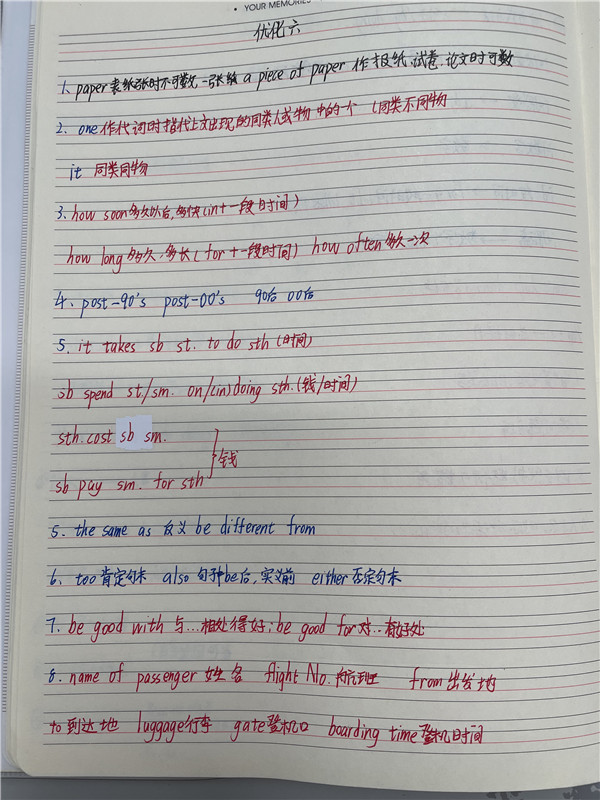 • YOUR MEMORIES
优化六
1. paper表纸张时不可数 一张纸 a piece of paper 作报纸.试卷.论文时可数
2. one作代词时指代上文出现的同类人或物中的一个 (同类不同物
it 同类同物
3. how soon多久以后,多快(in+一段时间)
how long多久,多长(for+一段时间) how often多久一次
4、post-90's post-00's 90后 00后
5. it takes sb st. to do sth (时间)
sb spend st/sm. on/(in)doing sth.(钱/时间)
sth.cost sb sm.
sb pay sm. for sth 钱
5. the same as 反义 be different from
6. too肯定句末 also句中be后,实义前 either否定句末
7. be good with 与...相处得好;be good for对..有好处
8. name of passenger 姓名 flight No.航班 from出发地
to到达地 luggage行李 gate登机口 boarding time登机时间